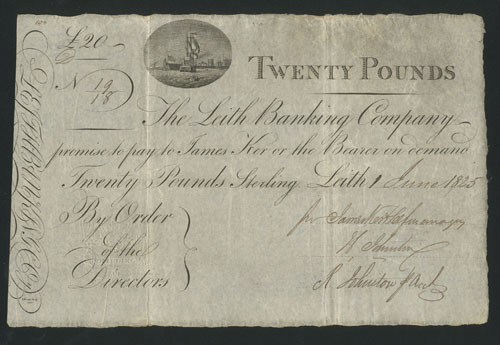 £20
TWENTY POUNDS
No 19/18
The Leith Banking Company
promise to pay to James Ker or the Bearer on demand
Twenty Pounds Sterling Leith 1 June 1825
By Order
of the
Directors
for James Ker manager
R Johnston p Acct